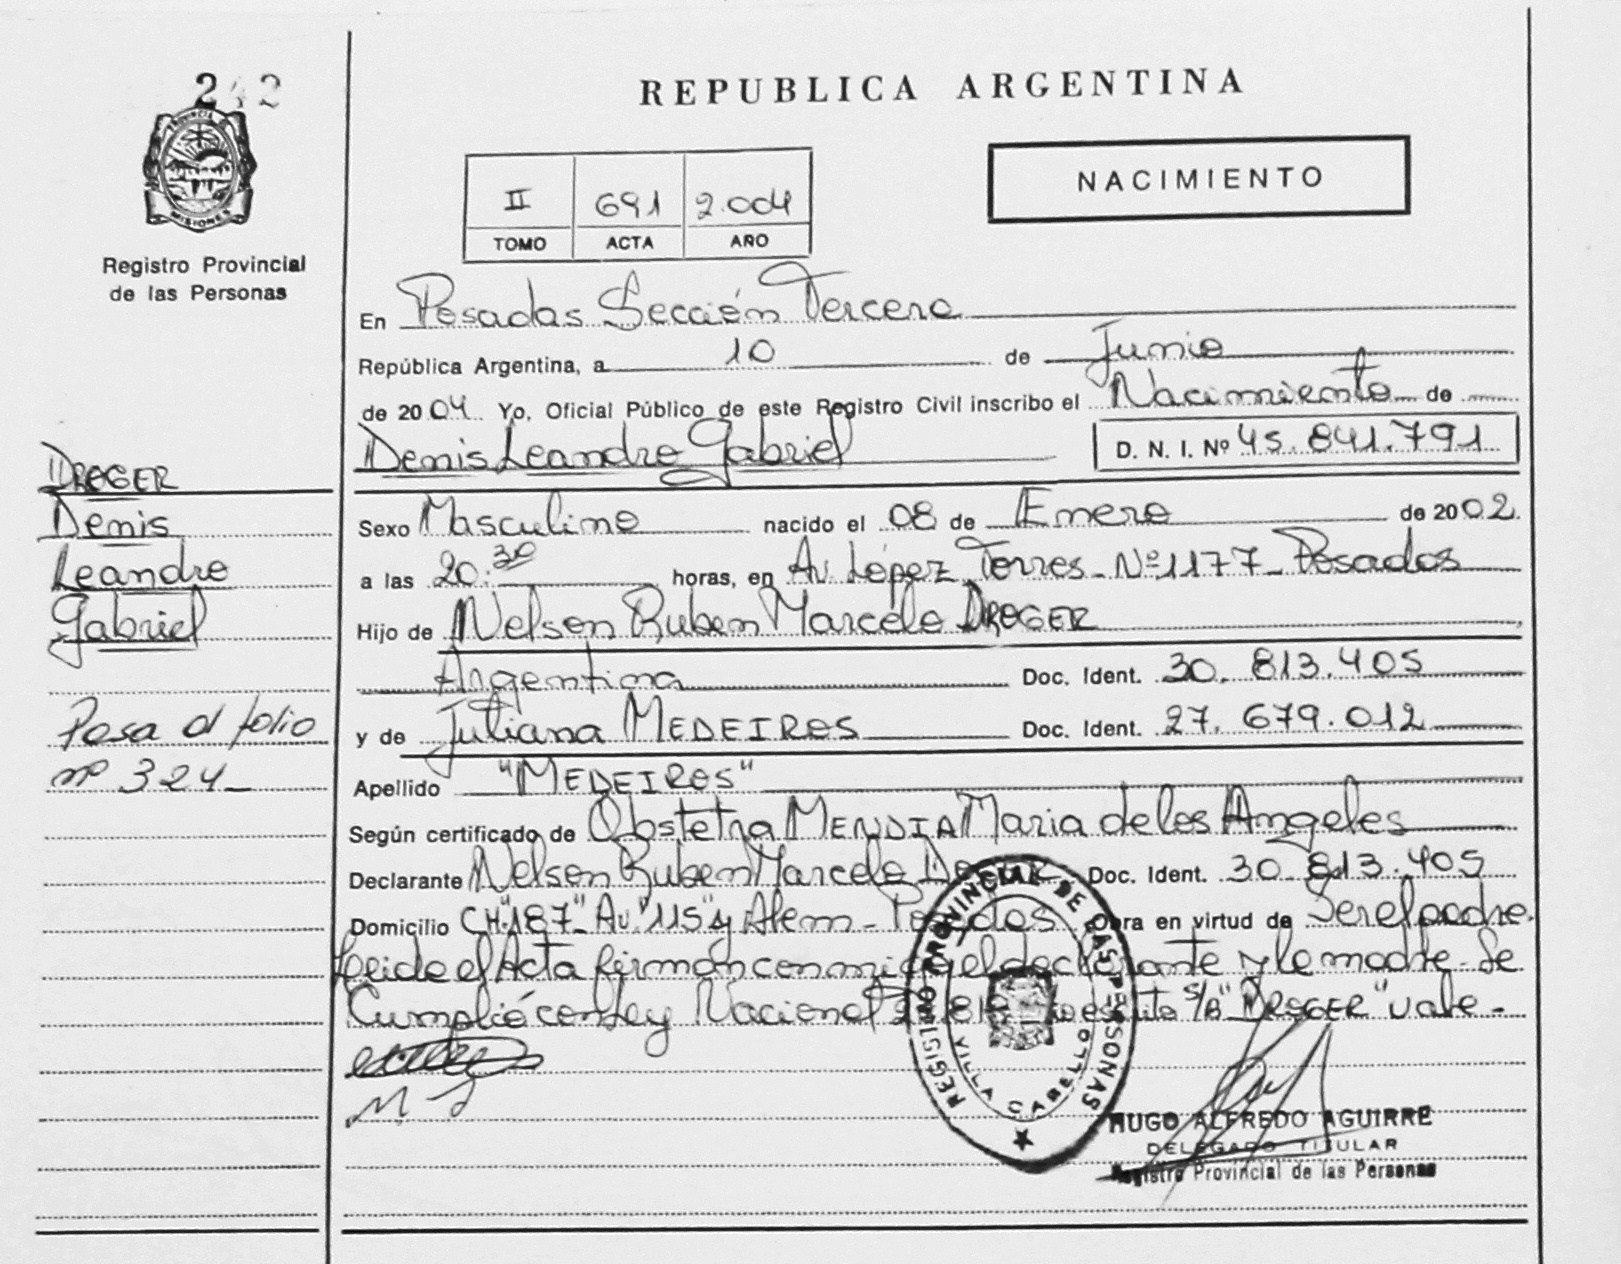 242
REPUBLICA ARGENTINA
PROVINCIA
MISIONES
NACIMIENTO
II 691 2.004
TOMO ACTA AÑO
Registro Provincial
de las Personas
En Posadas Sección Tercera
República Argentina, a 10 de Junio
de 2004 Yo, Oficial Público de este Registro Civil inscribo el Nacimiento de
Denis Leandro Gabriel D. N. I. Nº 45.841.791
DROGER
Denis
Leandro
Gabriel
Pasa al folio
nº 324
Sexo Masculino nacido el 08 de Enero de 2002
a las 20.30 horas, en Av. López Torres - Nº 1177 - Posadas
Hijo de Nelson Ruben Marcelo DROGER
Argentina Doc. Ident. 30.813.405
y de Juliana MEDEIROS Doc. Ident. 27.679.012
Apellido "MEDEIROS"
Según certificado de Obstetra MENDIA Maria de los Angeles
Declarante Nelson Ruben Marcelo Doc. Ident. 30.813.405
Domicilio CH "187" Av. "115" y Alem - Posadas Obra en virtud de Ser el padre
leida el Acta firman conmigo el declarante y la madre. Se
Cumplió con Ley Nacional S/B "DROGER" vale -
REGISTRO PROVINCIAL DE LAS PERSONAS
VILLA CABELLO
HUGO ALFREDO AGUIRRE
DELEGADO TITULAR
Registro Provincial de las Personas